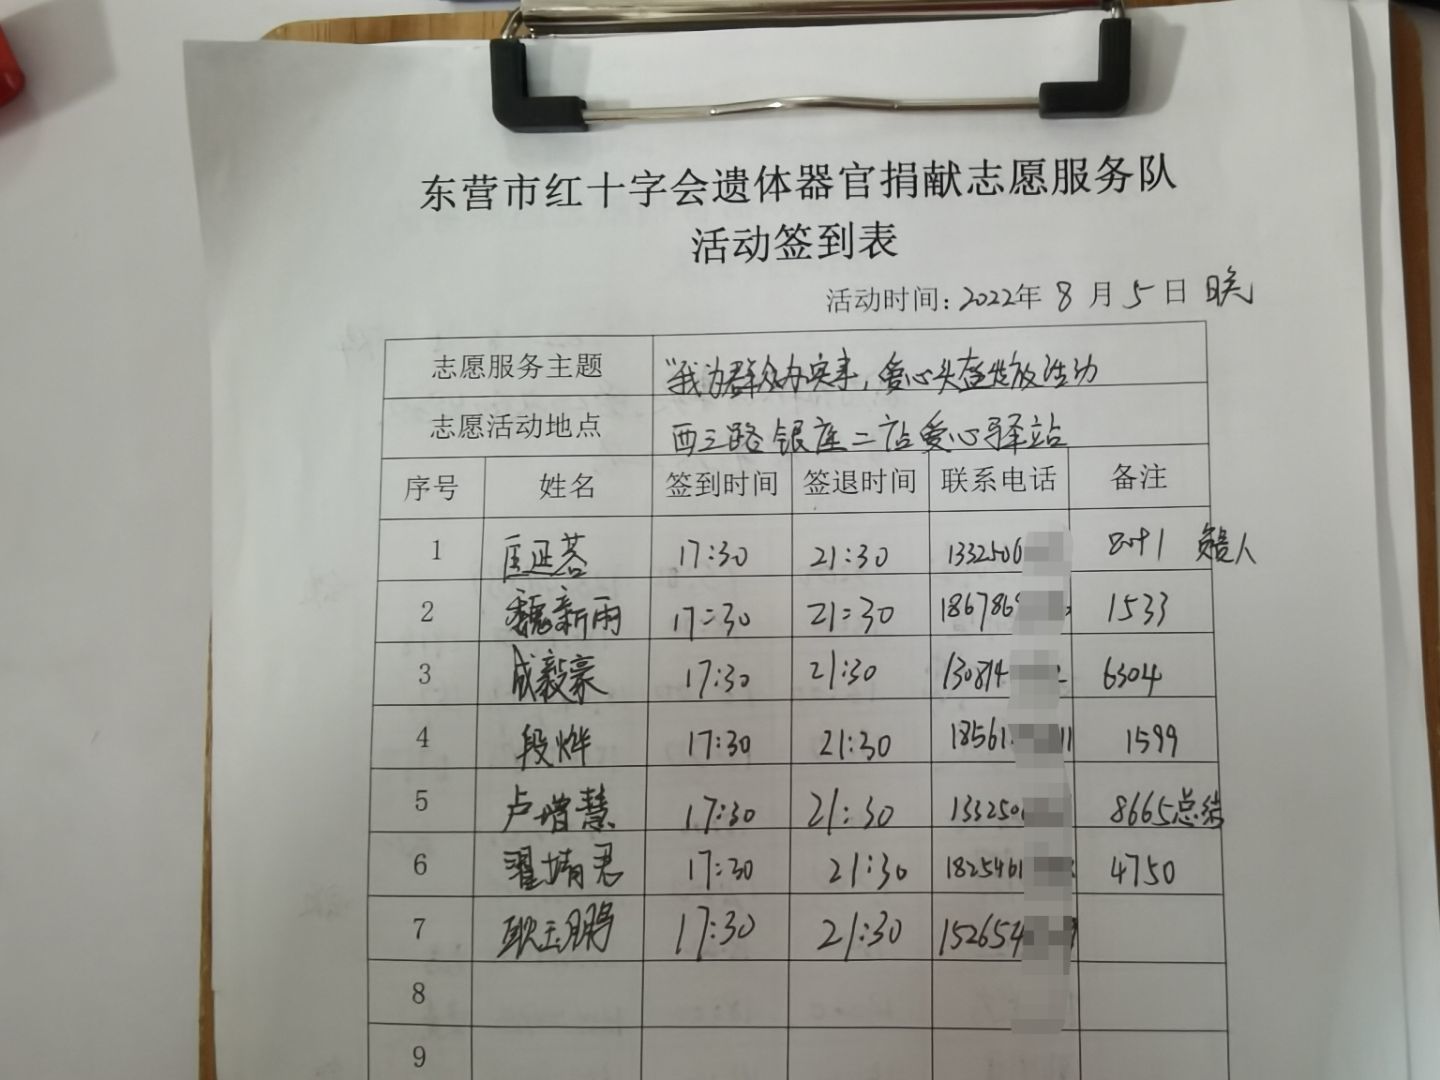 东营市红十字会遗体器官捐献志愿服务队
活动签到表
活动时间: 2022年 8 月 5 日 晚
志愿服务主题 "我为群众办实事, 爱心头盔发放活动
志愿活动地点 西三路银座二店爱心驿站
序号 姓名 签到时间 签退时间 联系电话 备注
1 匡延茗 17:30 21:30 1332506 负责人
2 魏新雨 17:30 21:30 186786 1533
3 成毅豪 17:30 21:30 130814 6304
4 段烨 17:30 21:30 18561 11 1599
5 卢增慧 17:30 21:30 133250 8665总结
6 翟婧君 17:30 21:30 1825461 4750
7 耿玉鹏 17:30 21:30 152654
8
9